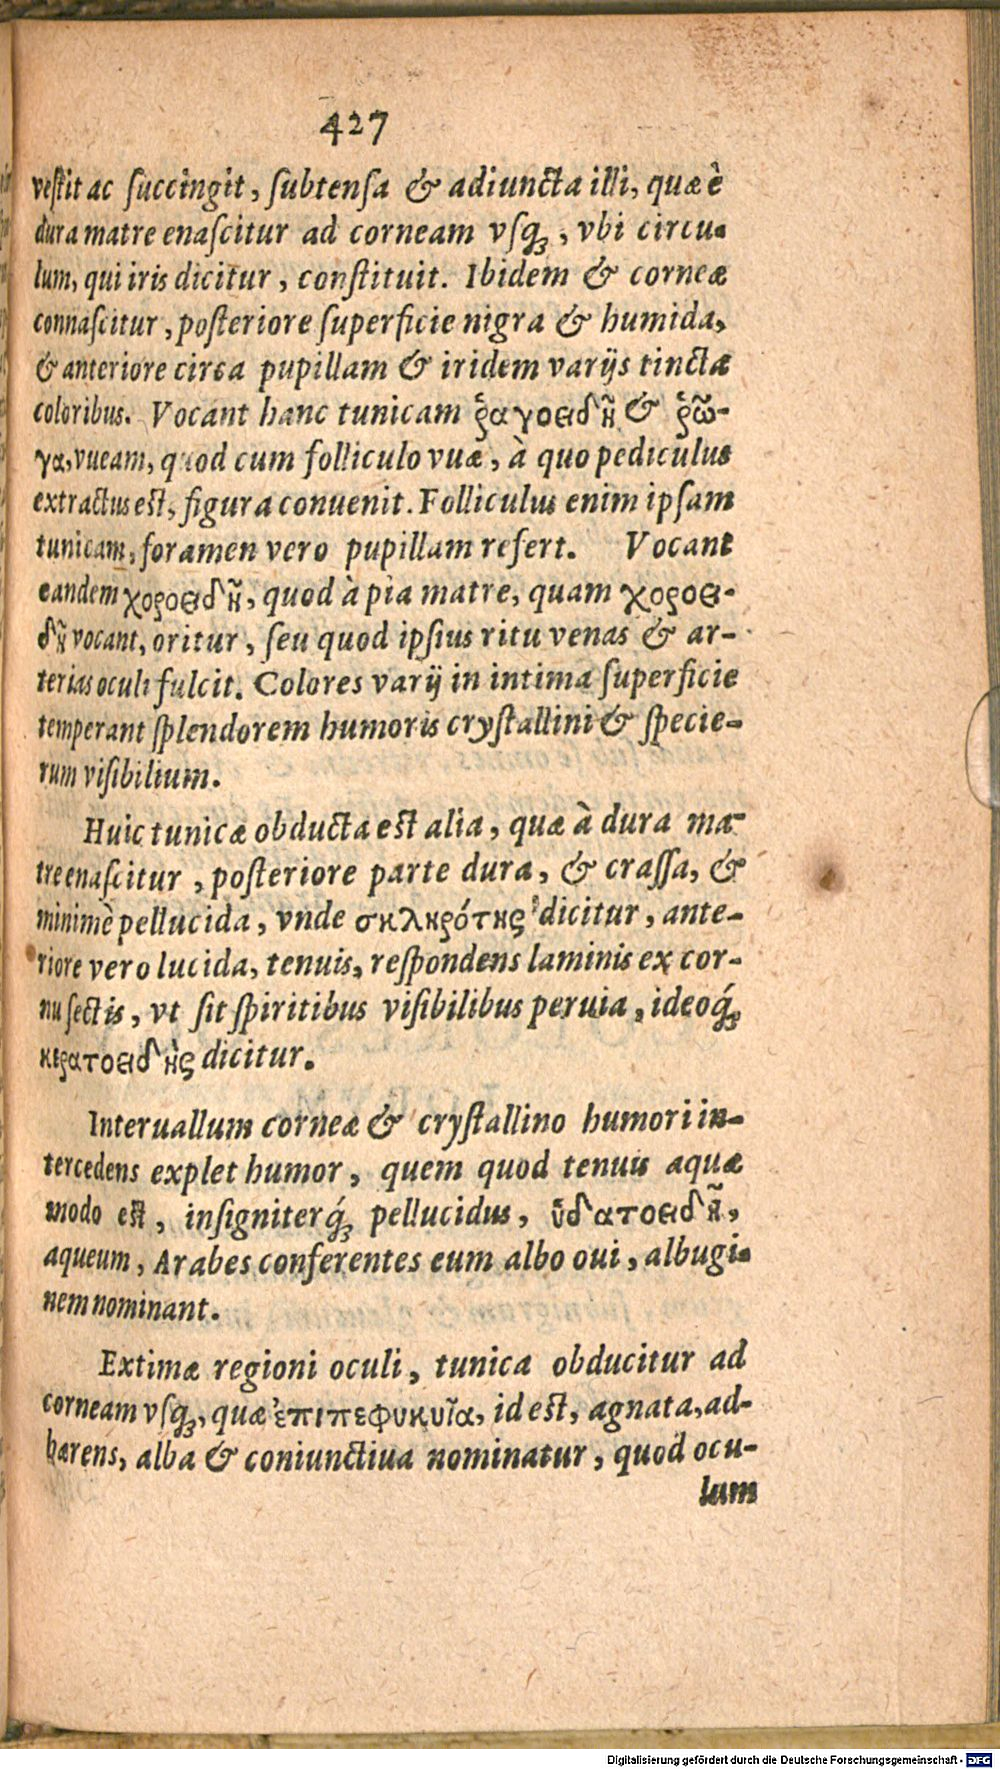 427
vestit ac succingit, subtensa & adiuncta illi, quæ è
dura matre enascitur ad corneam vsq́ꝫ, vbi circu-
lum, qui iris dicitur, constituit. Ibidem & corneæ
connascitur, posteriore superficie nigra & humida,
& anteriore circa pupillam & iridem varijs tinctæ
coloribus. Vocant hanc tunicam ῥαγοειδῆ & ῥῶ-
γα, vueam, quod cum folliculo vuæ, à quo pediculus
extractus est, figura conuenit. Folliculus enim ipsam
tunicam, foramen vero pupillam refert. Vocant
eandem χοροειδῆ, quod à pia matre, quam χοροει-
δῆ vocant, oritur, seu quod ipsius ritu venas & ar-
terias oculi fulcit. Colores varij in intima superficie
temperant splendorem humoris crystallini & specie-
rum visibilium.
Huic tunicæ obducta est alia, quæ à dura ma-
tre enascitur, posteriore parte dura, & crassa, &
minimè pellucida, vnde σκληρότης dicitur, ante-
riore vero lucida, tenuis, respondens laminis ex cor-
nu sectis, vt sit spiritibus visibilibus peruia, ideoq́ꝫ
κερατοειδὴς dicitur.
Interuallum corneæ & crystallino humori in-
tercedens explet humor, quem quod tenuis aquæ
modo est, insigniterq́ꝫ pellucidus, ὑδατοειδῆ,
aqueum, Arabes conferentes eum albo oui, albugi-
nem nominant.
Extimæ regioni oculi, tunica obducitur ad
corneam vsq́ꝫ, quæ ἐπιπεφυκυῖα, id est, agnata, ad-
hærens, alba & coniunctiua nominatur, quod ocu-
lum
Digitalisierung gefördert durch die Deutsche Forschungsgemeinschaft - DFG